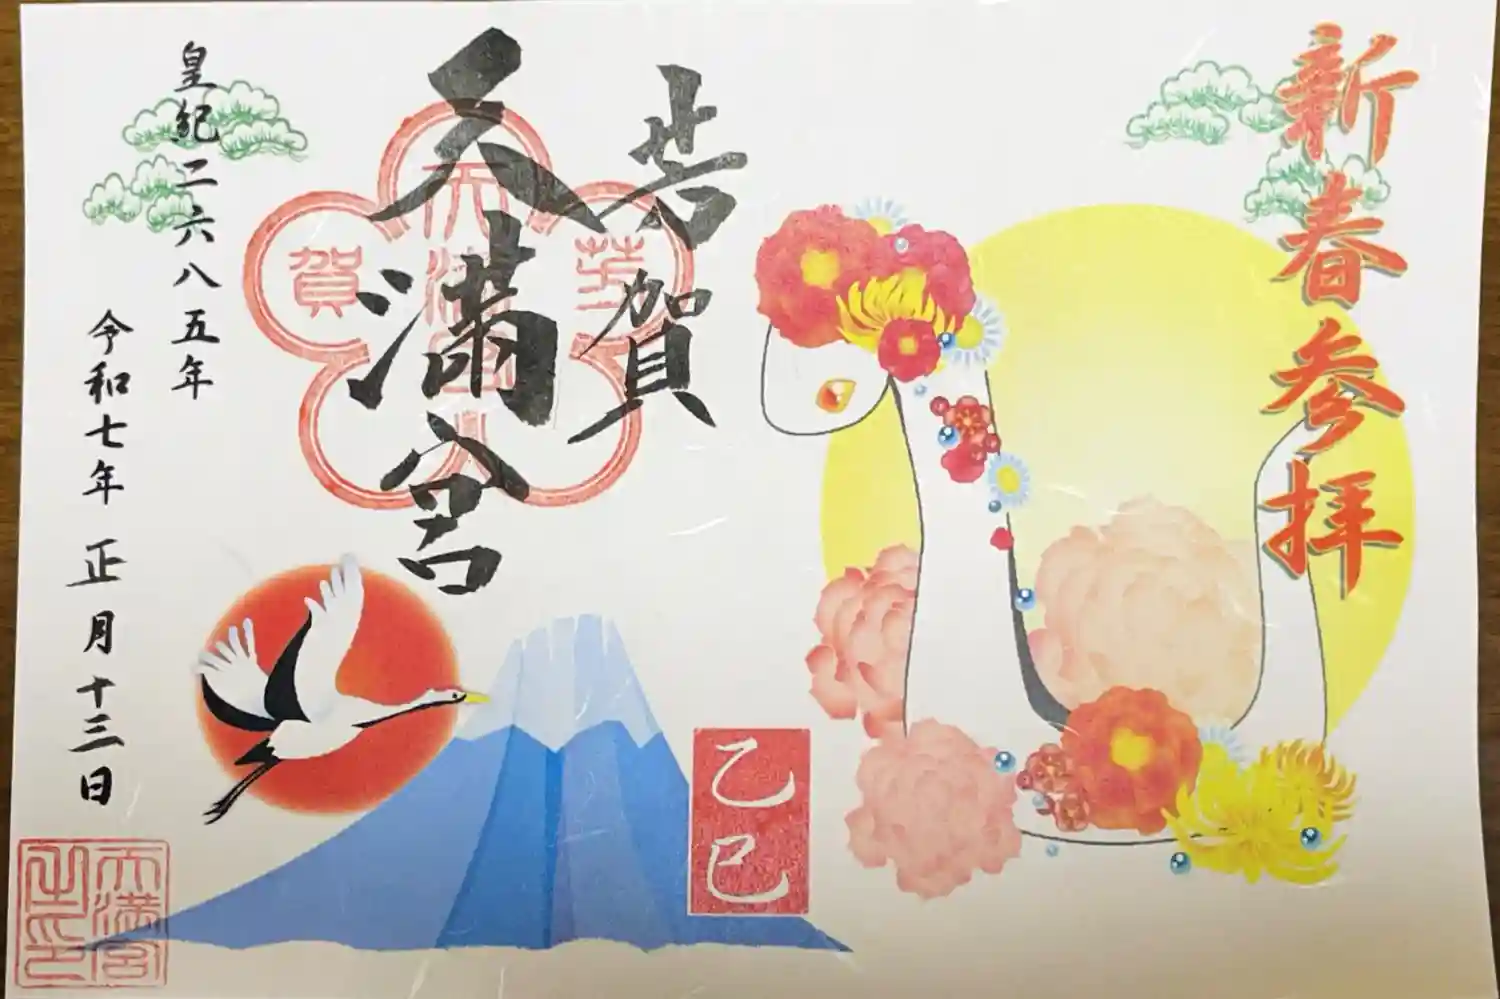 新春参拝
芳賀
天満宮
芳
天満宮
賀
皇紀二六八五年
令和七年 正月十三日
乙巳
天満宮
之印